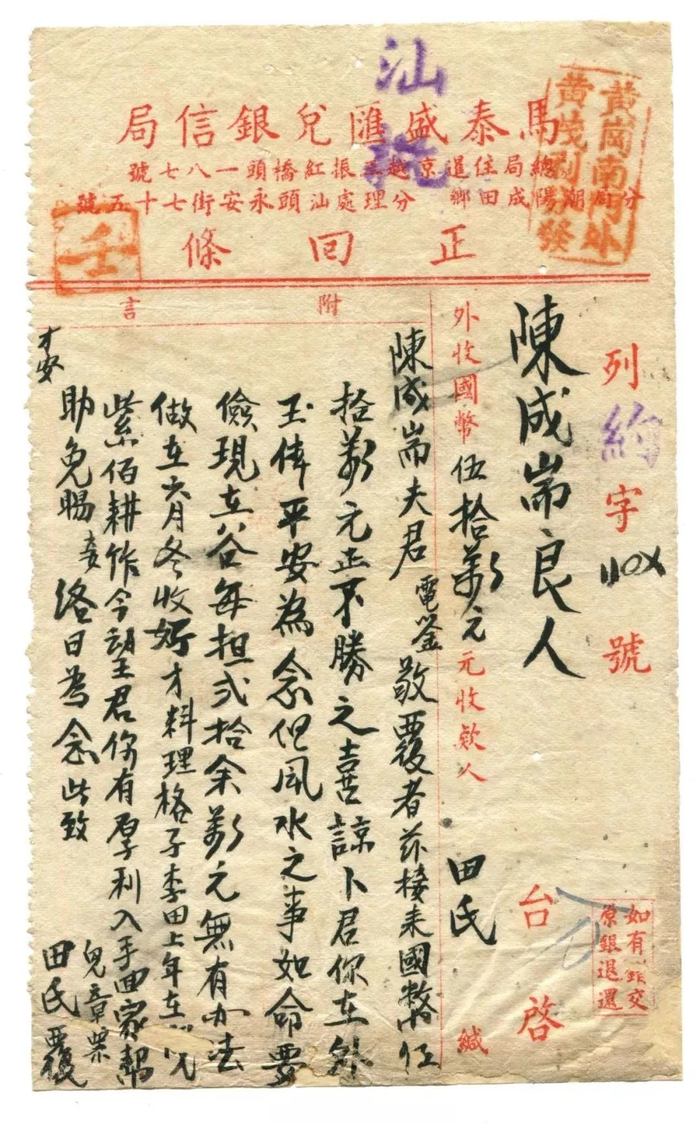 汕
黃崗南門外
黃茂利分發
馬泰盛匯兌銀信局
總局住暹京越三振紅橋頭一八七號
分局潮陽成田鄉 分理處汕頭永安街七十五號
正回條
壬
列約字110X號
陳成耑良人
台啓
如有
原銀退還
外收國幣伍拾萬元元收欵人田氏緘
附言
陳成耑夫君電鉴敬覆者茲接来國幣伍
拾萬元正不勝之喜諒卜君你在外
玉体平安為念但風水之事如命要
儉現在谷每担弍拾余萬元無有办法
做在六月冬收好才料理格子李田上年在
紫佰耕作今胡王君你有厚利入手回家幫
助免賜妾終日為念此致
才安
兒章崇
田氏覆